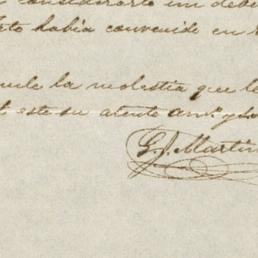 considerarlo un deber
había convenido en
la molestia que le
este su atento am.º y
G. J. Martin